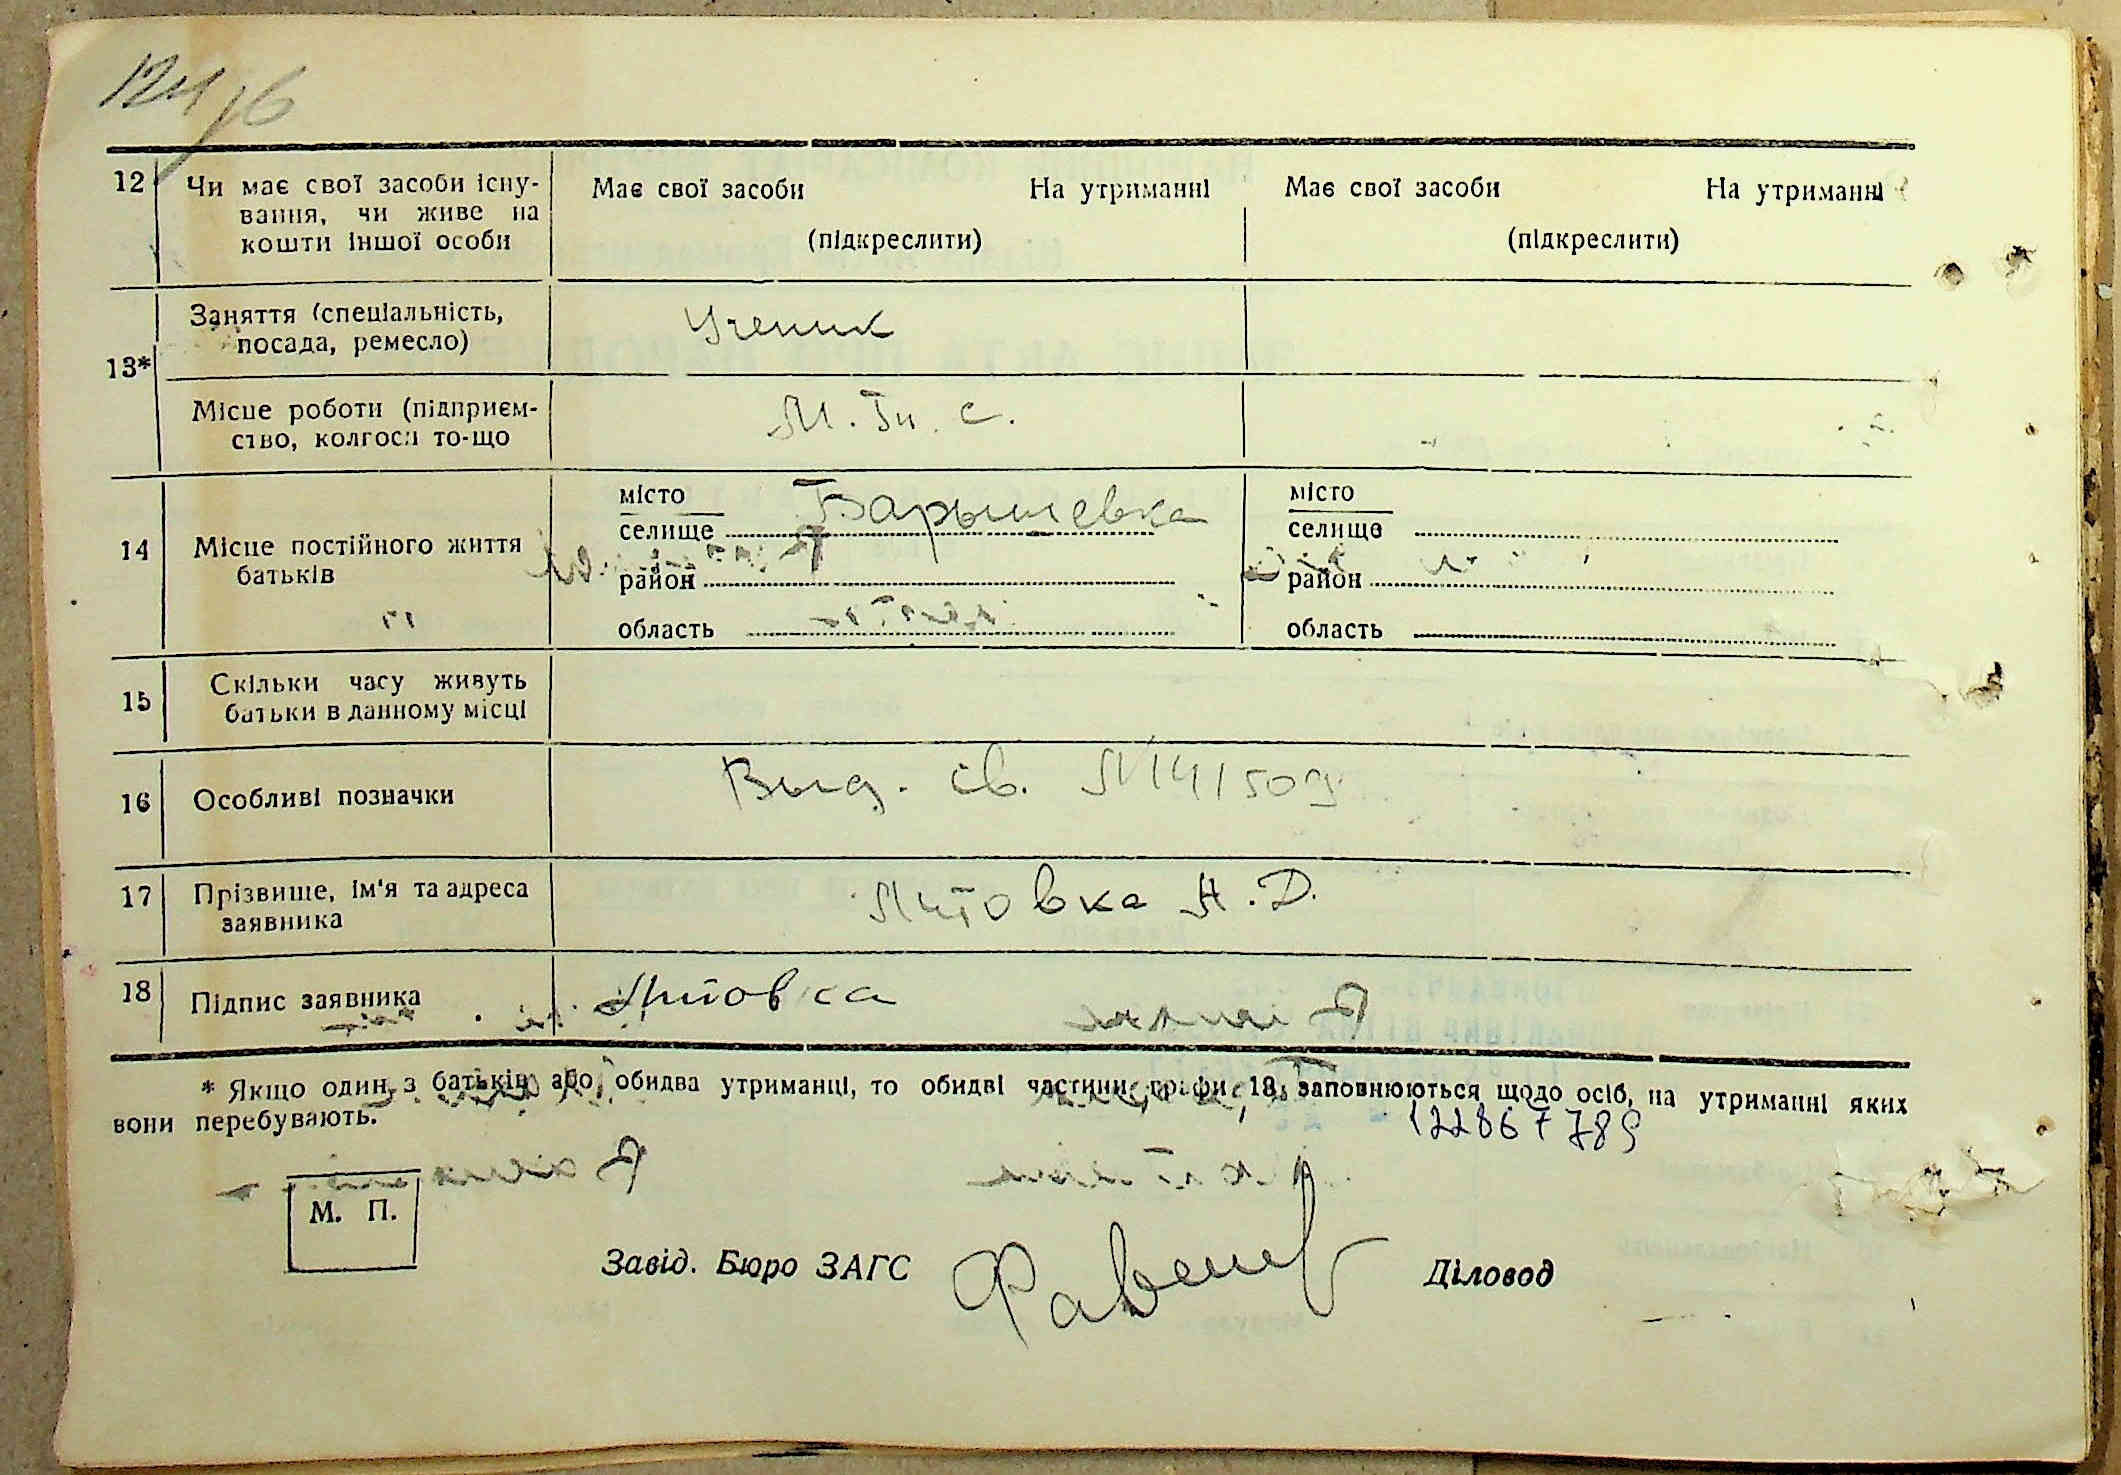 12 Чи має свої засоби існу-
вання, чи живе на
кошти іншої особи
Має свої засоби На утриманні
(підкреслити)
Має свої засоби На утриманні
(підкреслити)
13*
Заняття (спеціальність,
посада, ремесло)
Ученик
Місце роботи (підприєм-
ство, колгосп то-що
14 Місце постійного життя
батьків
місто
селище Барышевка
район
область
місто
селище
район
область
15 Скільки часу живуть
батьки в данному місці
16 Особливі позначки
Выд. св.
17 Прізвище, ім'я та адреса
заявника
Литовка А. Д.
18 Підпис заявника
Литовка
* Якщо один з батьків або обидва утриманці, то обидві частини графи 13 заповнюються щодо осіб, на утриманні яких
вони перебувають.
122867789
М. П.
Завід. Бюро ЗАГС
Діловод